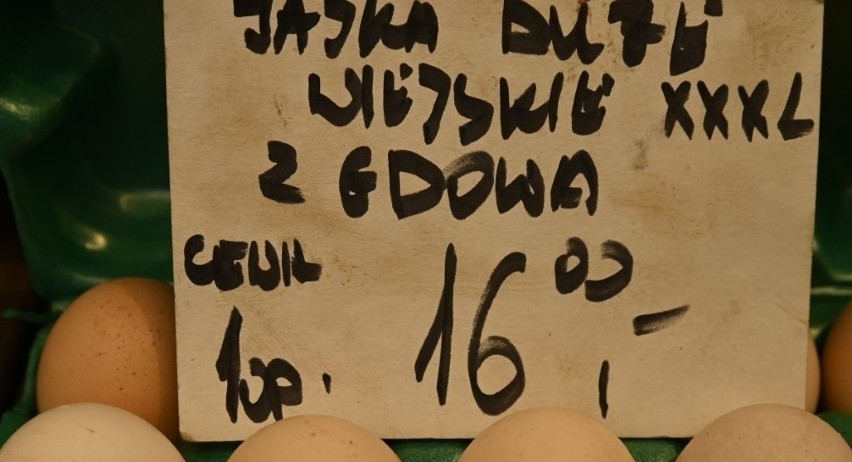 JAJKA DUŻE
WIEJSKIE XXXL
Z GDOWA
CENA
1 op. 16 00 ,-